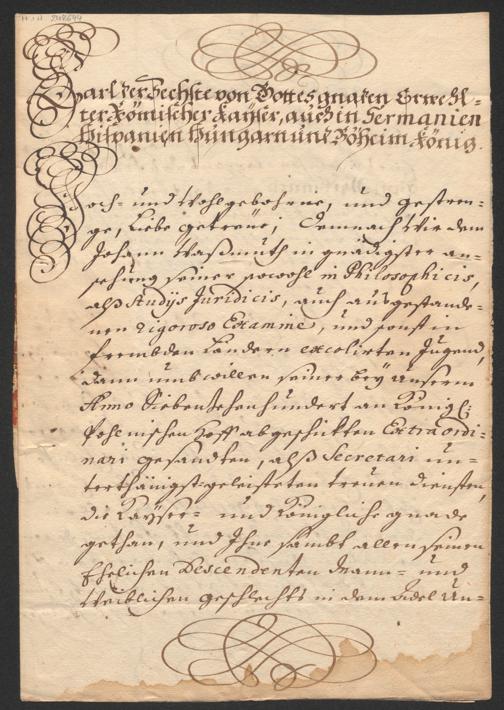 Carl der Sechste von Gottes gnaden Erwehl-
ter Römischer Kayser, auch in Germanien
Hispanien Hungarn und Böheim König.
Hoch- und Wohlgebohrne, und gestren-
ge, Liebe getreue; Demnach Wir dem
Johann Waßmuth in gnädigster an-
sehung seiner sowohl in Philosophicis,
alß Studijs Juridicis, auch ausgestande-
nen rigoroso Examine, und sonst in
frembden Landern excolirten Jugend,
dann umb willen seiner bey unserm
Anno Siebenzehenhundert an Königl:
Pohlnischen Hoff abgeschikten Extraordi-
nari gesandten, alß Secretari un-
terthänigst-geleisteten treuen diensten,
die Kayser- und Königliche gnade
gethan, und Ihne sambt allen seinen
Ehelichen Descendenten Mann- und
Weiblichen geschlechts in dem Adel Un-